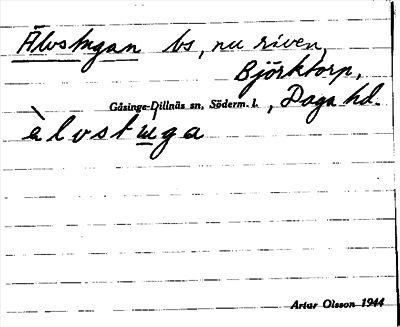 Älvstugan bs, nu riven,
Björktorp,
Gåsinge-Dillnäs sn, Söderm. l., Daga hd.
àlvstu̲ga
Artur Olsson 1944